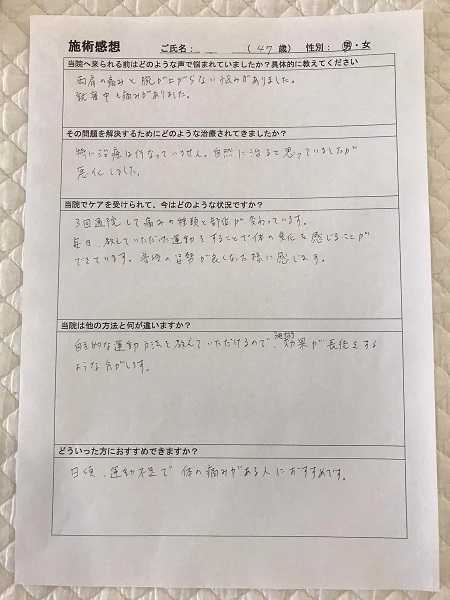 施術感想 ご氏名： （47歳） 性別： 男・女
当院へ来られる前はどのような声で悩まれていましたか？具体的に教えてください
両肩の痛みと腕が上がらない悩みがありました。
就寝中も痛みがありました。
その問題を解決するためにどのような治療されてきましたか？
特に治療は行なっていません。自然に治ると思っていましたが
悪化しました。
当院でケアを受けられて、今はどのような状況ですか？
3回通院して痛みの種類と部位が変わっています。
毎日、教えていただいた運動をすることで体の変化を感じることが
できています。普段の姿勢が良くなった様に感じます。
当院は他の方法と何が違いますか？
自主的な運動方法を教えていただけるので、施術効果が長続きする
ような気がします。
どういった方におすすめできますか？
日頃、運動不足で体の痛みがある人におすすめです。